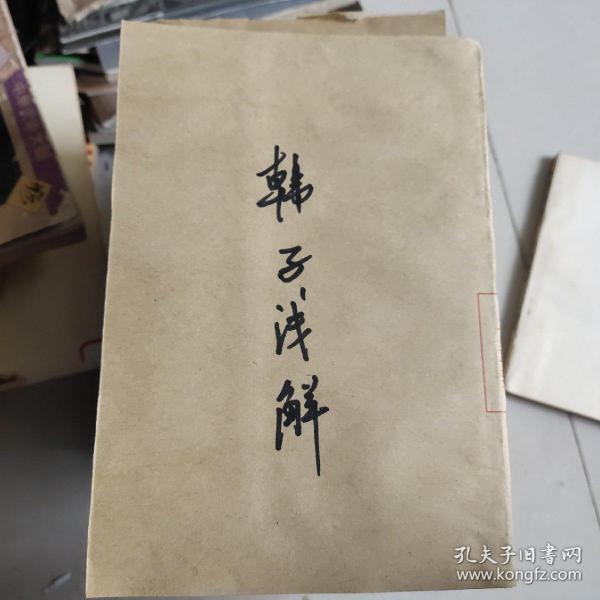 韩子浅解
孔夫子旧书网
www.kongfz.com